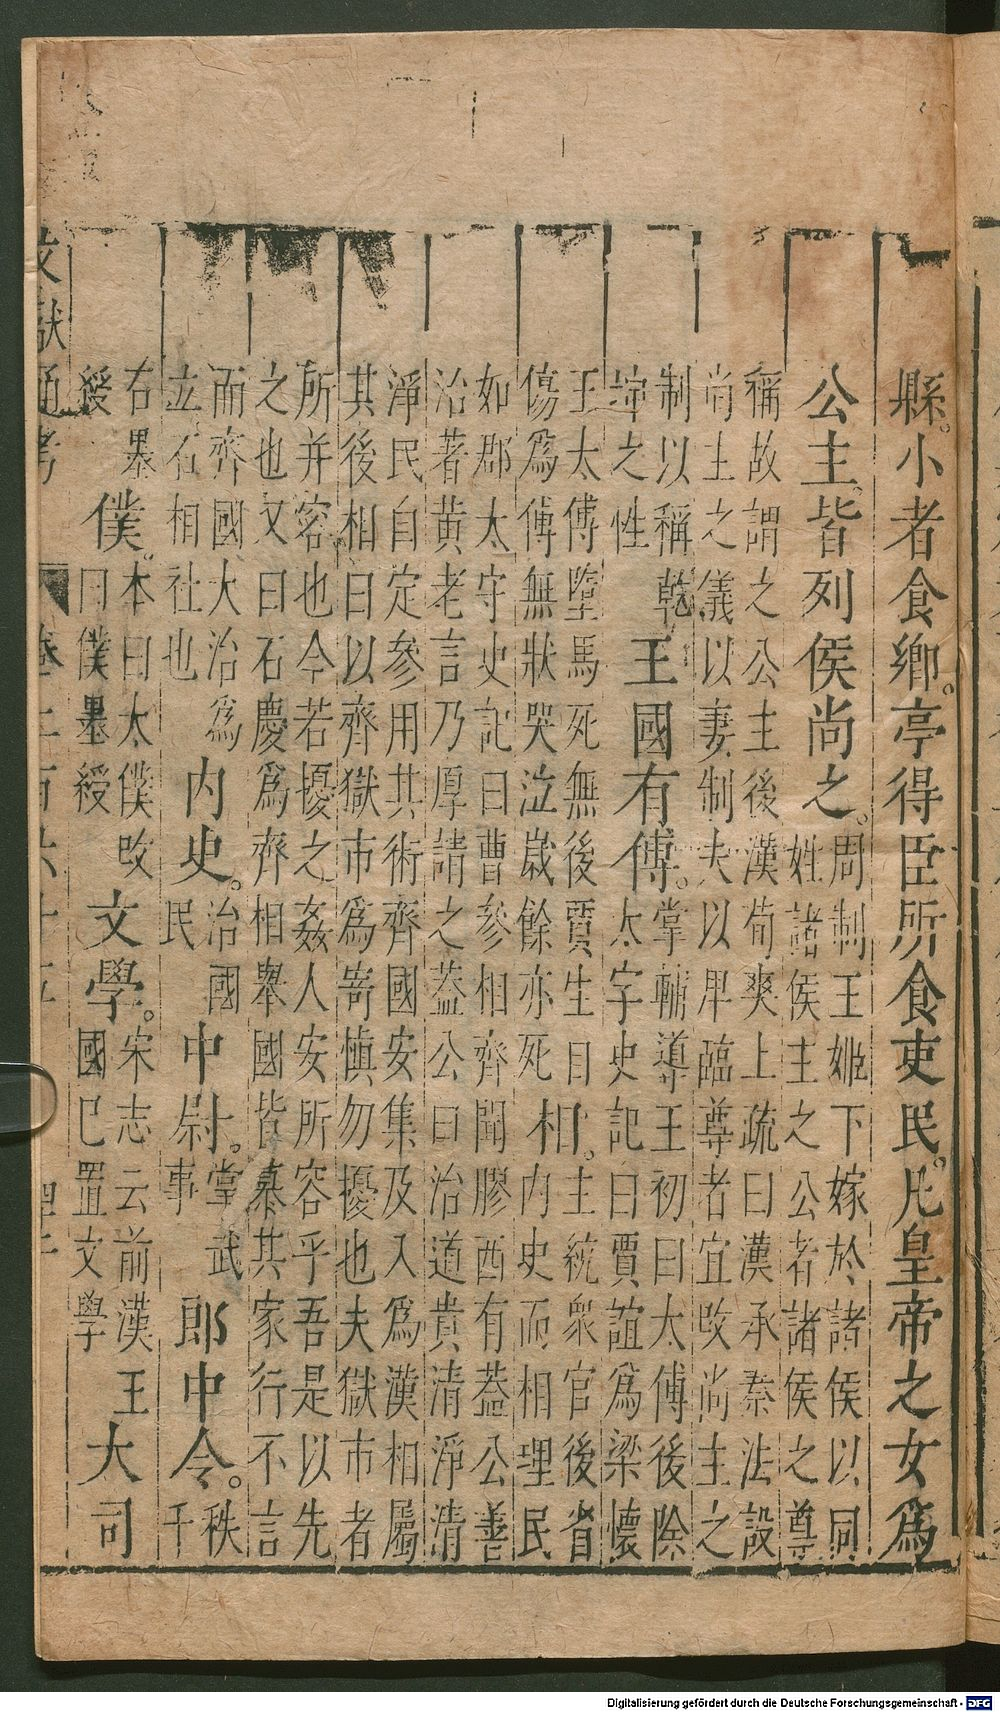 縣。小者食鄉。亭得臣所食吏民。凡皇帝之女爲
公主。皆列侯尚之。
周制王姬下嫁於諸侯以同
姓諸侯主之公者諸侯之尊
稱故謂之公主後漢荀爽上疏曰漢承秦法設
尚主之儀以妻制夫以卑臨尊者宜改尚主之
制以稱乾
坤之性
王國有傅。
掌輔導王初曰太傅後除
太字史記曰賈誼爲梁懷
王太傅墮馬死無後賈生自
傷爲傅無狀哭泣歲餘亦死
相。
主統衆官後省
內史而相理民
如郡太守史記曰曹參相齊聞膠西有蓋公善
治著黃老言乃厚請之蓋公曰治道貴清淨清
淨民自定參用其術齊國安集及入爲漢相屬
其後相曰以齊獄市爲寄慎勿擾也夫獄市者
所并容也今若擾之姦人安所容乎吾是以先
之也又曰石慶爲齊相舉國皆慕其家行不言
而齊國大治爲
立石相社也
內史。
治國
民
中尉。
掌武
事
郎中令。
秩
千
右墨
綬
僕。
本曰太僕改
曰僕墨綬
文學。
宋志云前漢王
國已置文學
大司
文獻通考
Digitalisierung gefördert durch die Deutsche Forschungsgemeinschaft - DFG